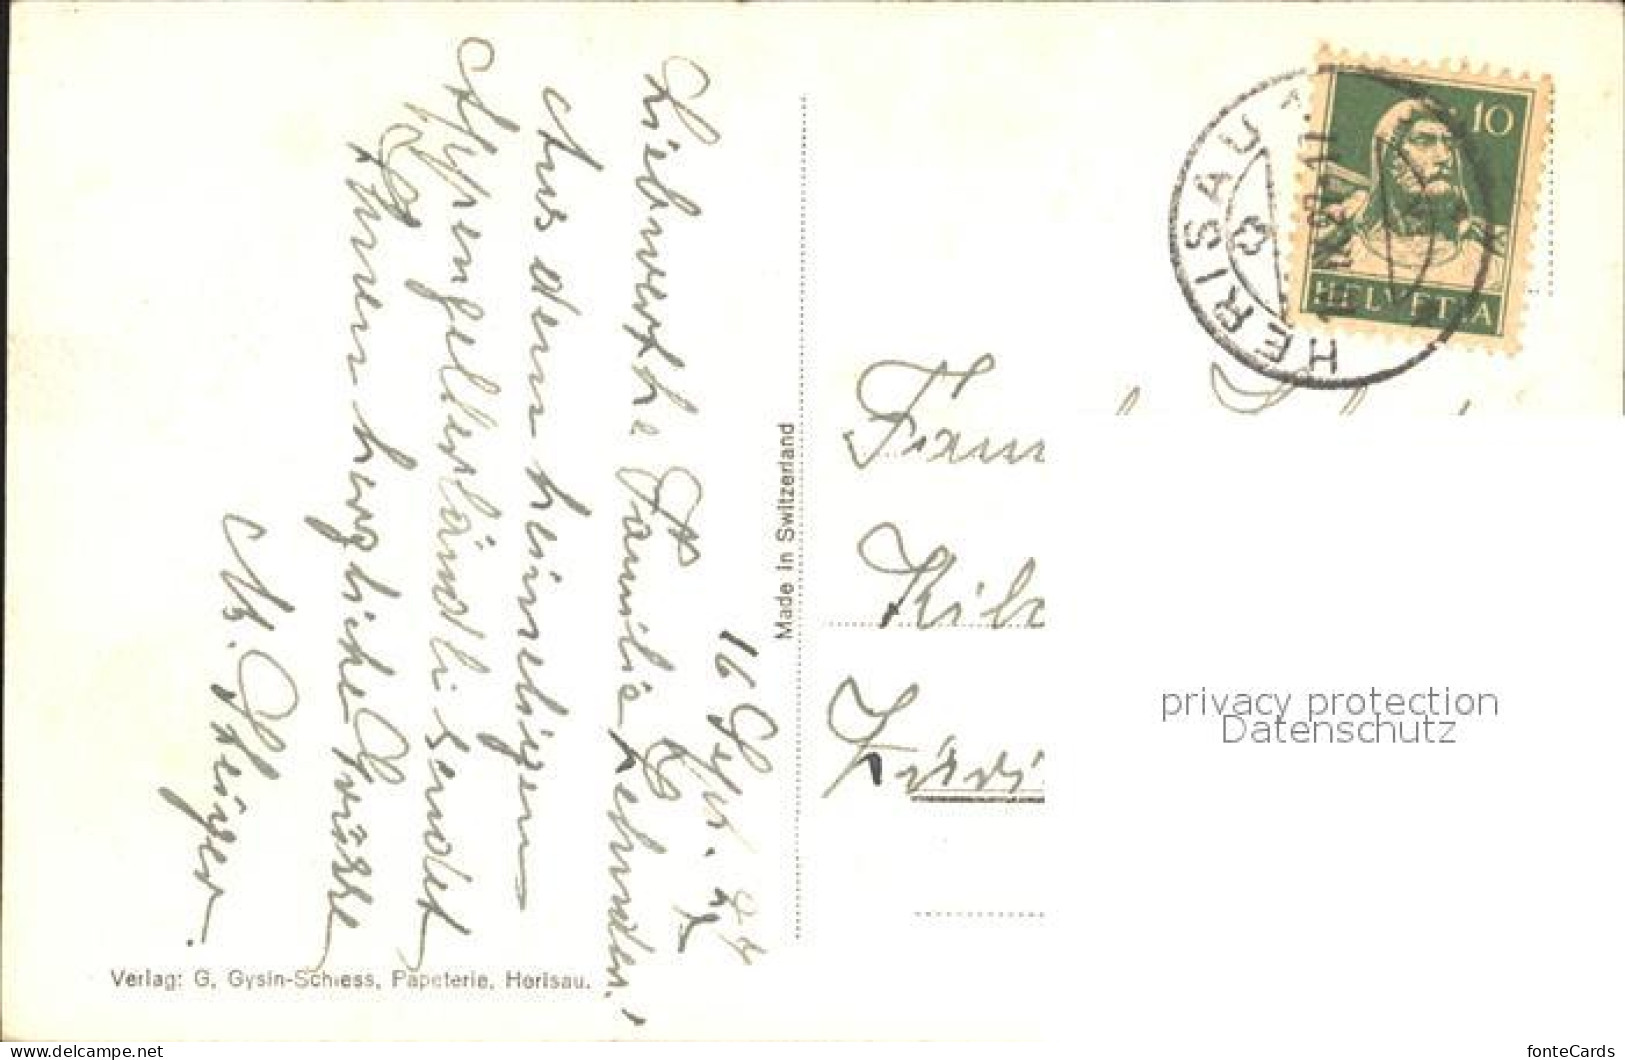 16 Sept.
Liebwerthe Familie Zehnder!
Aus dem heimeligen
Appenzellerländli sendet
Ihnen herzliche Grüsse
M. Steiger.
Verlag: G. Gysin-Schiess, Papeterie, Herisau.
Made in Switzerland
HERISAU
10
HELVETIA
Fam
Züri
privacy protection
Datenschutz
www.delcampe.net
fonteCards